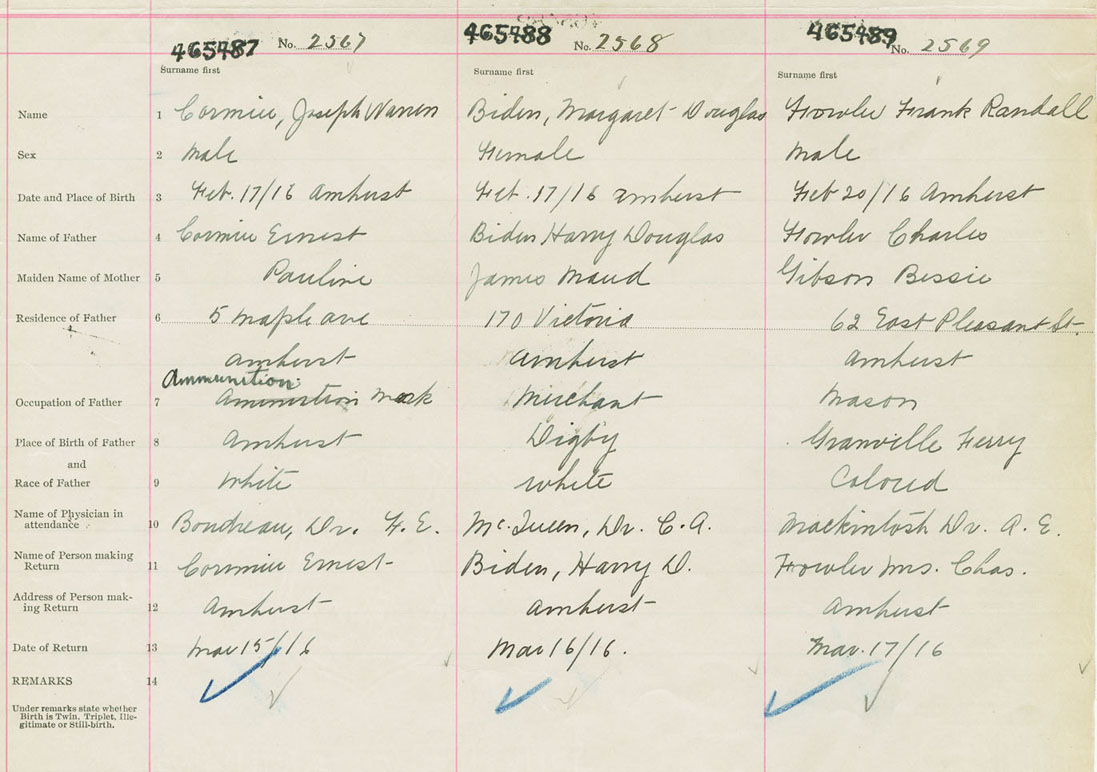 465487 No. 2567 465488 No. 2568 465489 No. 2569
Surname first Surname first Surname first
Name 1 Cormier, Joseph Warren Biden, Margaret Douglas Fowler Frank Randall
Sex 2 Male Female Male
Date and Place of Birth 3 Feb. 17/16 Amherst Feb. 17/16 Amherst Feb 20/16 Amherst
Name of Father 4 Cormier Ernest Biden Harry Douglas Fowler Charles
Maiden Name of Mother 5 Pauline James Maud Gibson Bessie
Residence of Father 6 5 Maple ave 170 Victoria 62 East Pleasant St.
Amherst Amherst Amherst
Ammunition
Occupation of Father 7 Merchant Mason
Place of Birth of Father 8 Amherst Digby Granville Ferry
and
Race of Father 9 White White Colored
Name of Physician in
attendance 10 Boudreau, Dr. F. E. McQueen, Dr. C. A. Mackintosh Dr. A. E.
Name of Person making
Return 11 Cormier Ernest Biden, Harry D. Fowler Mrs. Chas.
Address of Person mak-
ing Return 12 Amherst Amherst Amherst
Date of Return 13 Mar 15/16 Mar 16/16. Mar. 17/16
REMARKS 14
Under remarks state whether
Birth is Twin, Triplet, Ille-
gitimate or Still-birth.